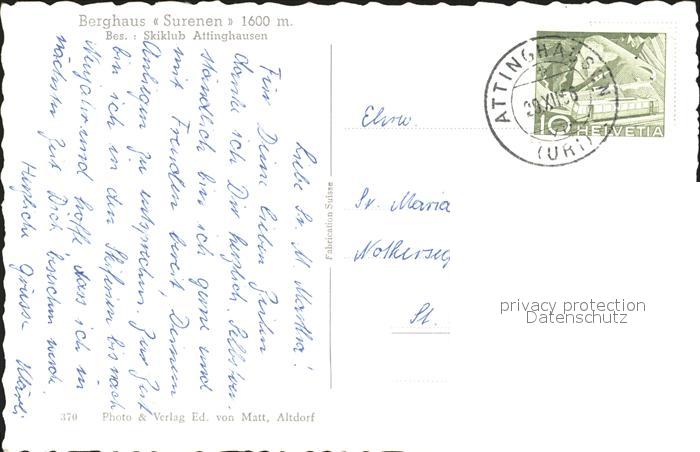 Berghaus « Surenen » 1600 m.
Bes. : Skiklub Attinghausen
Liebe Sr. M. Martha!
Für Deine lieben Zeilen
danke ich Dir herzlich. Selbstver-
ständlich bin ich gerne und
mit Freuden bereit, Deinem
Anliegen zu entsprechen. Zur Zeit
bin ich in den Skiferien bis nach
Neujahr und hoffe dass ich in
nächster Zeit Dich besuchen werde.
Herzliche Grüsse
370 Photo & Verlag Ed. von Matt, Altdorf
Fabrication Suisse
ATTINGHAUSEN
(URI)
10 HELVETIA
Ehrw.
Sr. Maria
Notkerseg
St.
privacy protection
Datenschutz